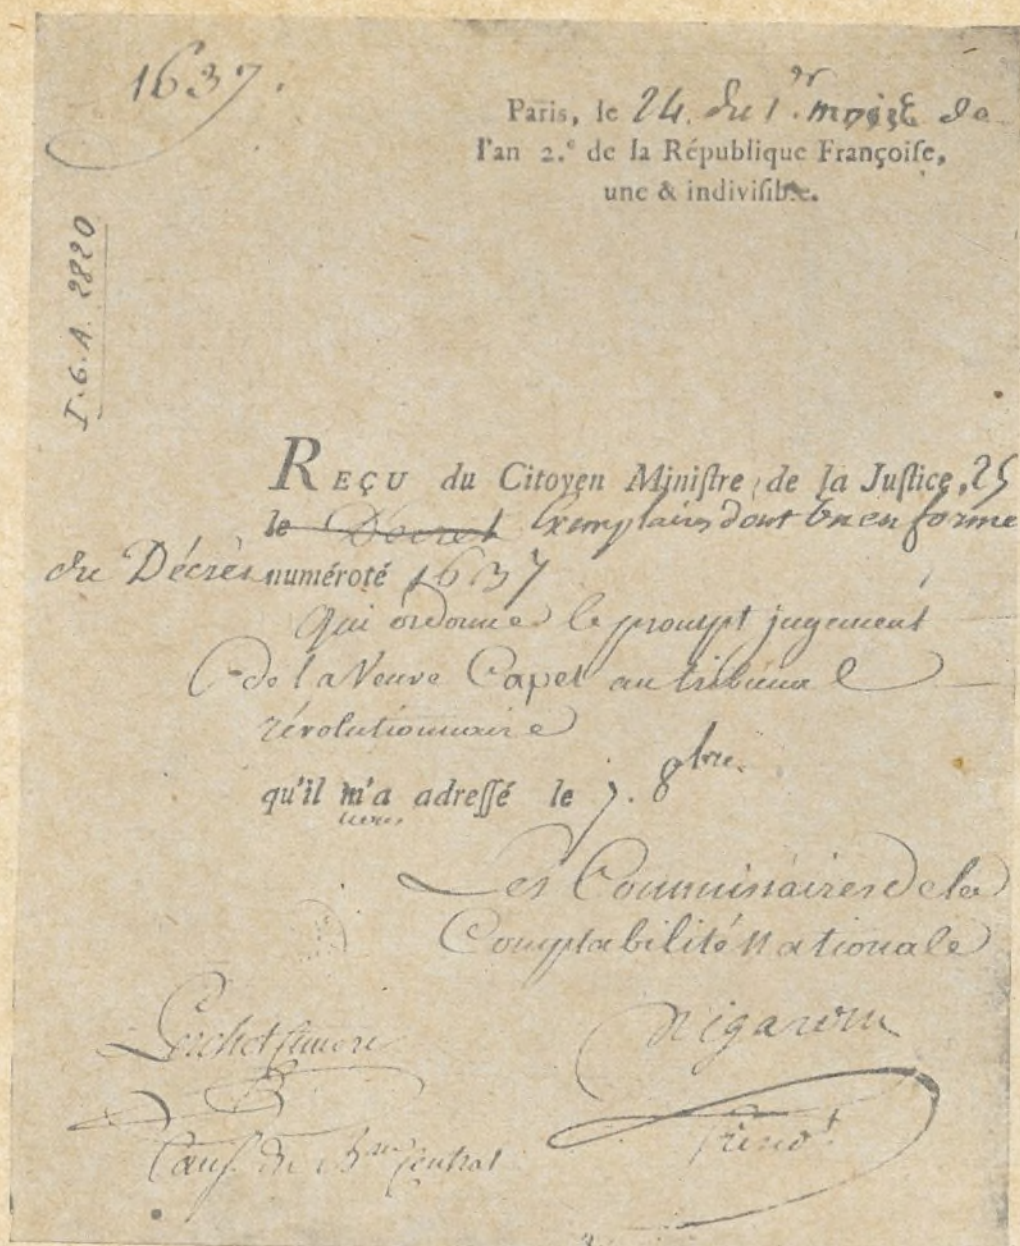 1637.
Paris, le 24. du 1.er mois de
l'an 2.e de la République Françoiſe,
une & indiviſible.
T. G. A. 2820
REÇU du Citoyen Miniſtre de la Juſtice, 25
le Decret Exemplaires dont un en forme
du Décret numéroté 1637
Qui ordonne le prompt jugement
de la Veuve Capet au tribunal
révolutionnaire
qu'il m'a adreſſé le 7. 8bre.
nous
Les Commissaires de la
Comptabilité Nationale
du Bau Central